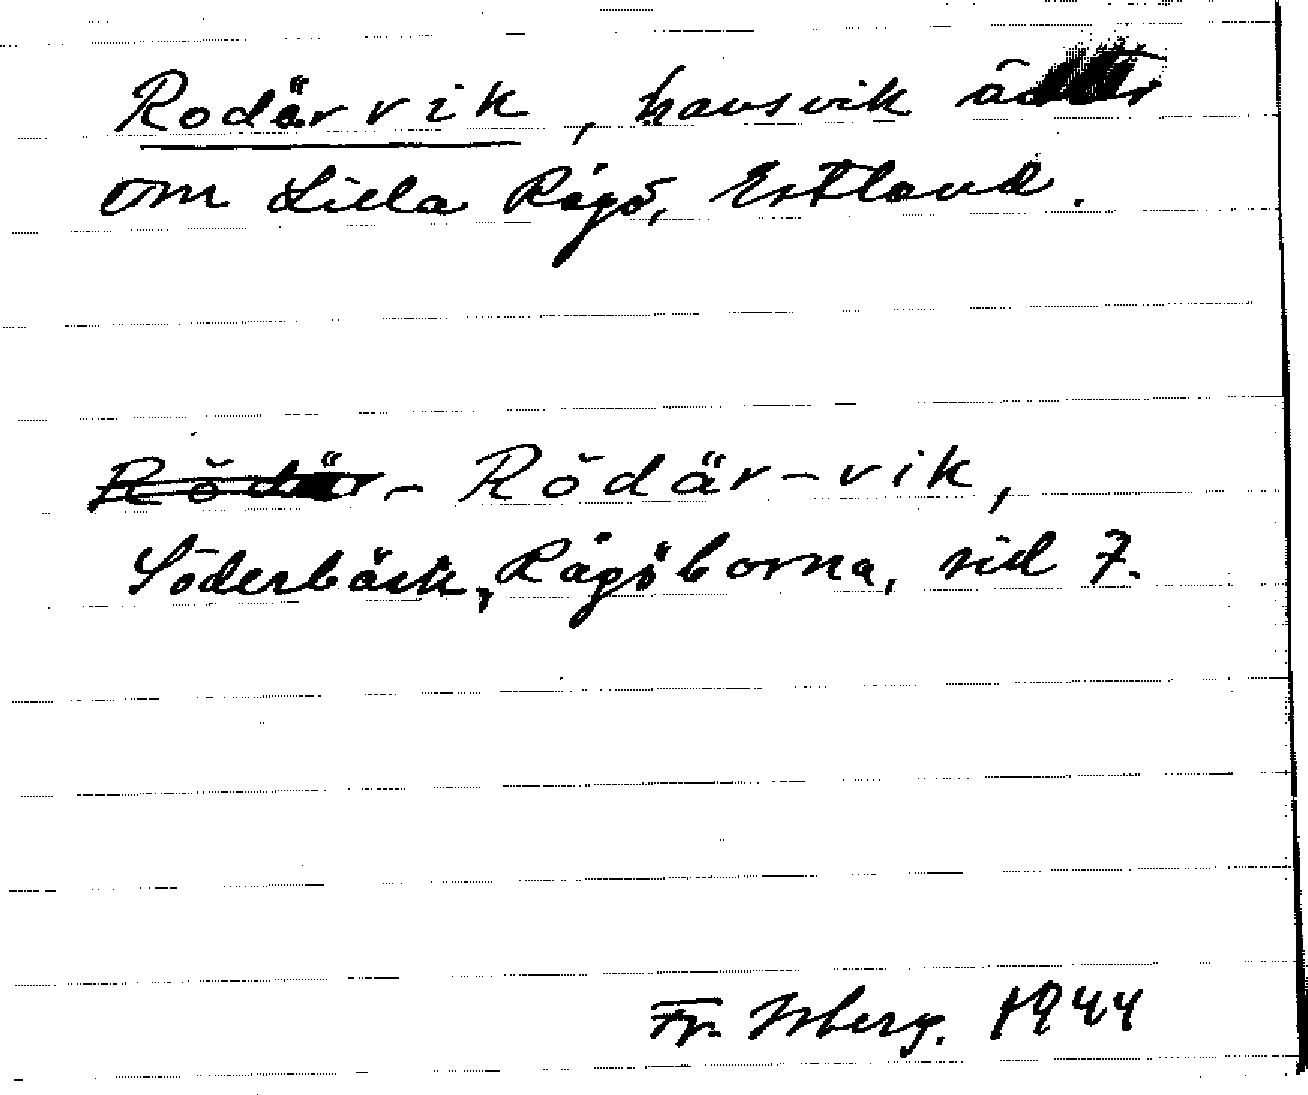 Rodärvik, havsvik
om Lilla Rågö, Estland.
Rŏdär-vik,
Söderbäck, Rågöborna, sid 7.
Fr. Isberg. 1944